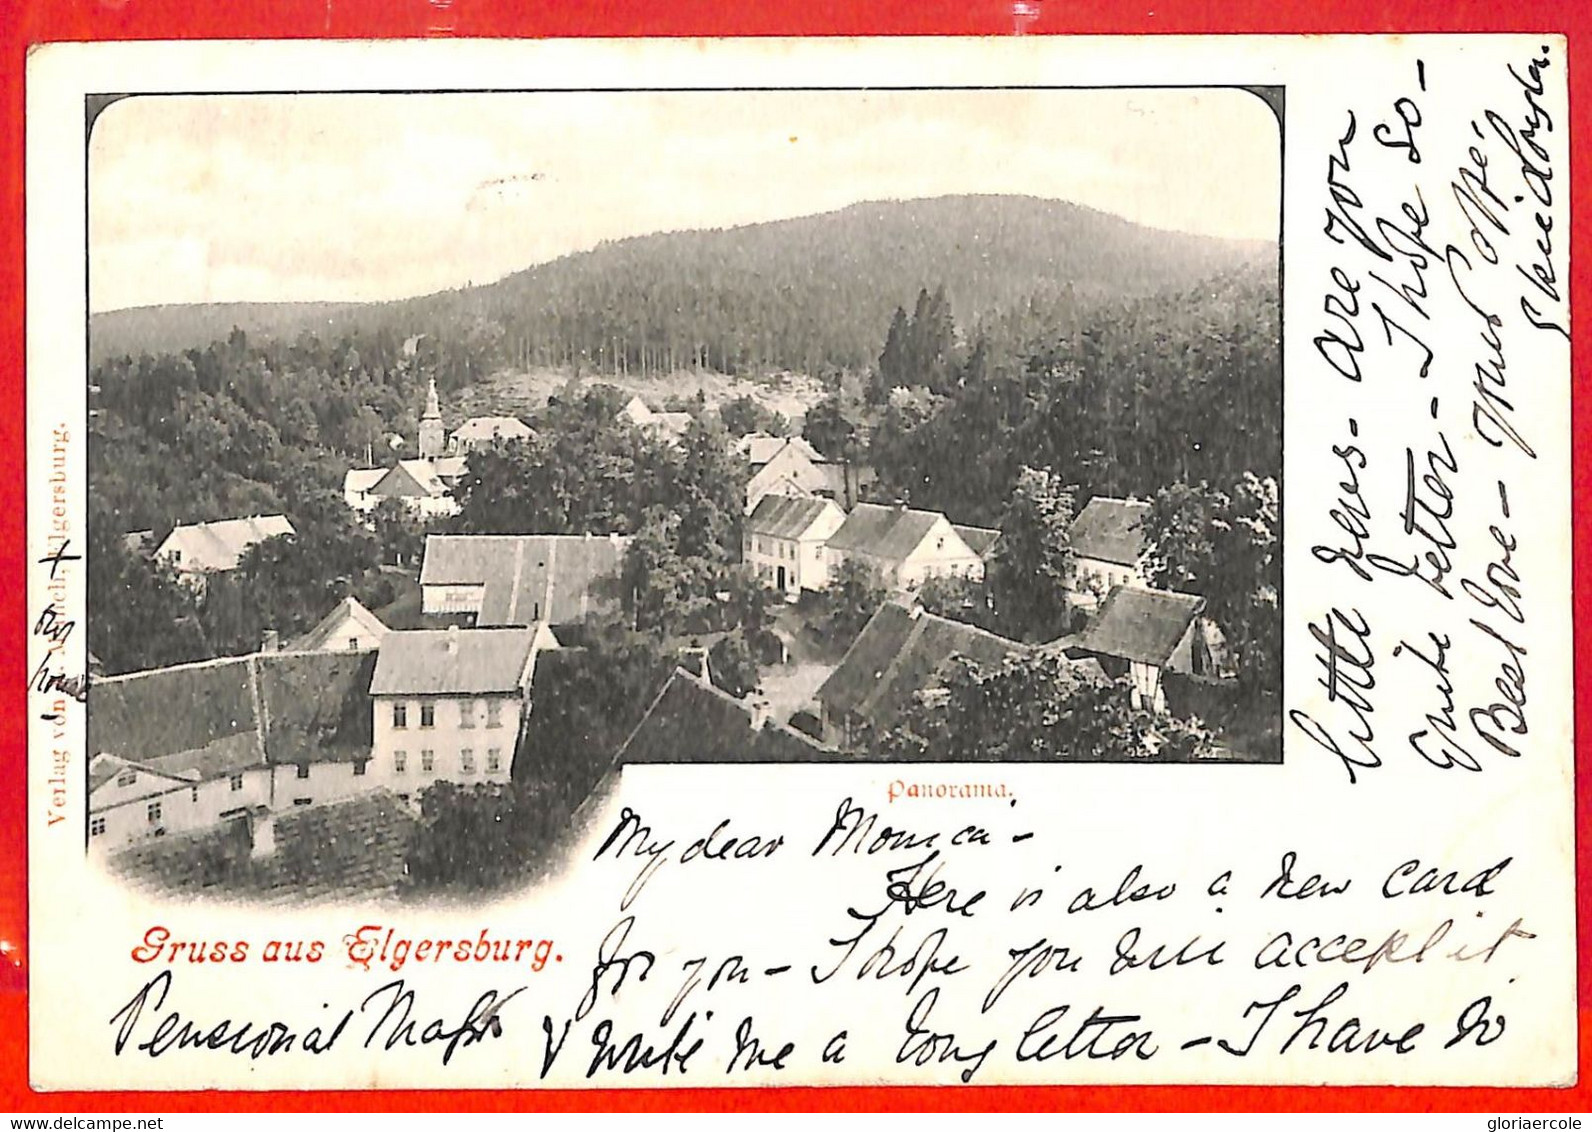 Verlag von A. Münch, Elgersburg.
our
house
Panorama.
Gruss aus Elgersburg.
My dear Monica -
Here is also a new card
for you - I hope you will accept it
& write me a long letter - I have no
little news - Are you
quite better - I hope so -
Best love - your
gloriaercole